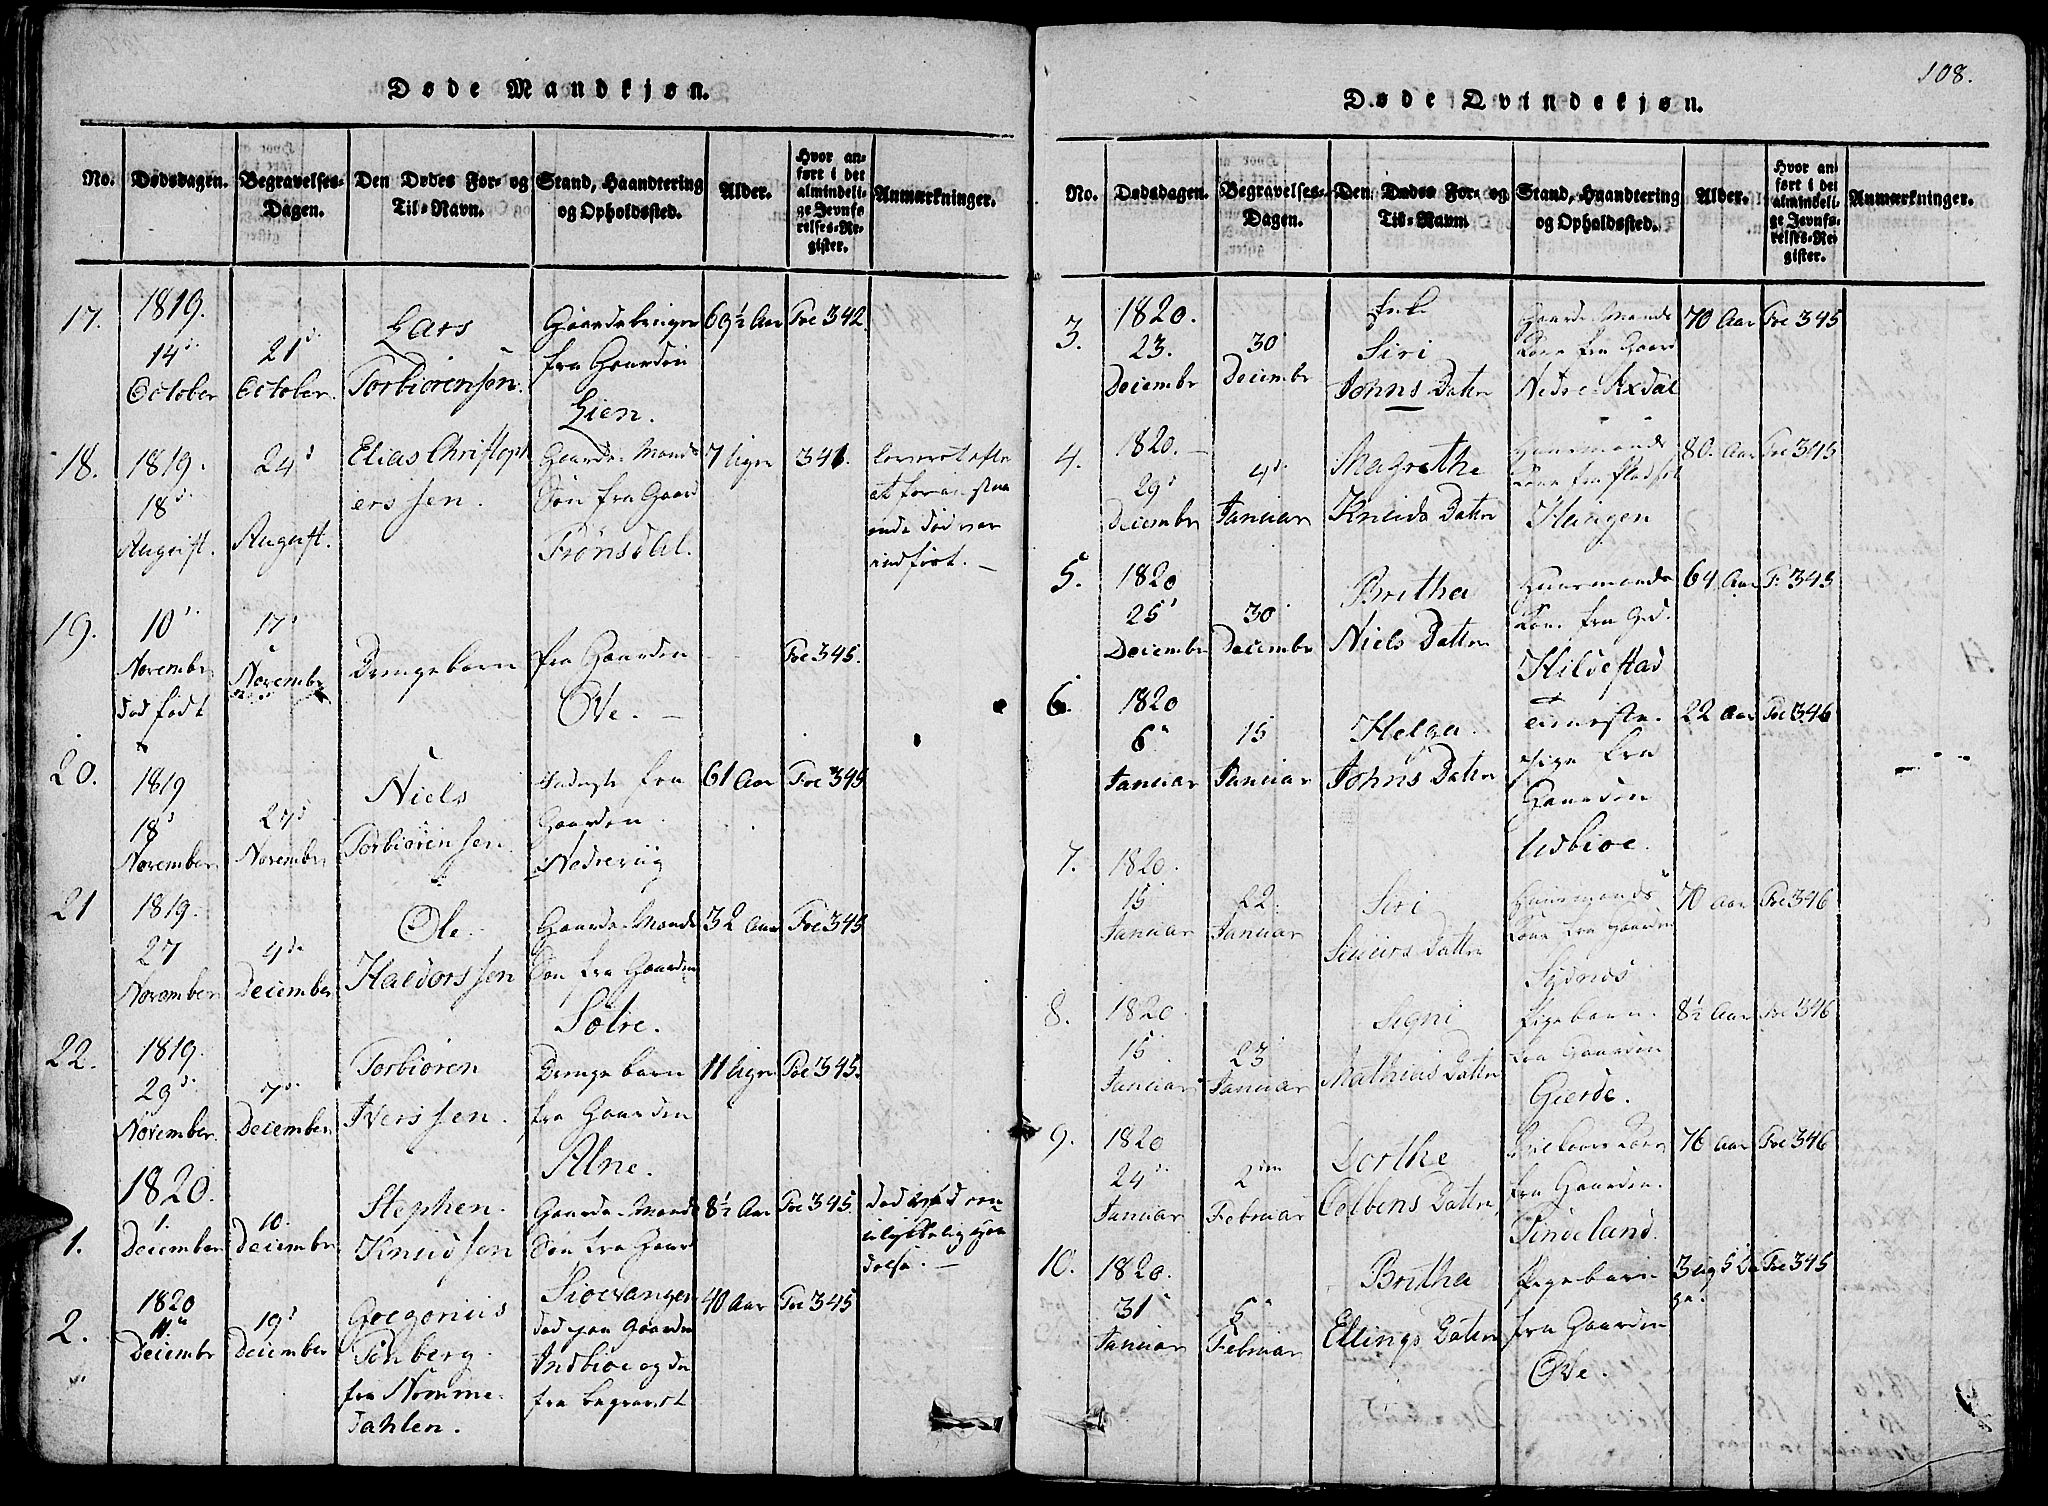 108.
Døde Mandkjøn.
No.
Dødsdagen.
Begravelses-
Dagen.
Den Dødes For- og
Til-Navn.
Stand, Haandtering
og Opholdssted.
Alder.
Hvor an-
ført i det
almindeli-
ge Jevnfø
relses-Re-
gister.
Anmærkninger.
17.
1819.
14
October
21
October.
Lars
Torbiørensøn.
fra Gaarden
Lien.
69½ Aar
Foe 342.
18.
1819.
18
August.
24
August.
Elias Christoph
erssen.
Gaard-Mands
Søn fra Gaard
Frønsdal.
7 Uger
341.
indført. –
19.
10
November
død født
17
November
Drengebarn
fra Gaarden
Ove. –
Foe 345.
20.
1819
18
November
27
November
Niels
Torbiørenssen.
fra
Gaarden
Nedrerüg
61 Aar
Foe 345
21
1819.
27
November
4de
December
Ole
Haldorssen
Gaard-Mands
Søn fra Gaarden
Sølre.
32 Aar
Foe 345
22.
1819.
29
November.
7
December.
Torbiøren
Iverssen.
Drengebarn
fra Gaarden
Alne.
11 Uger
Foe 345.
1820.
1.
1.
Deiember
10.
Deiember
Stephen.
Knudsøn
Gaard-Mands
Søn fra Gaar
Sioevangen
8½ Aar
Foe 345
død ved en
ulykkelig Hæn
delse. –
2.
1820
11
Deiembr
19
Deiember
Goegonius
Tønberg.
fra Nomme-
dahlen.
død paa Gaarden
Indbioe og der
fra begravet
40 Aar
Foe 345
Døde Qvindekjøn.
No.
Dødsdagen.
Begravelses-
Dagen.
Den Dødes For- og
Til-Navn.
Stand, Haandtering
og Opholdssted.
Alder.
Hvor an
ført i det
almindeli-
ge Jevnfø-
relses-Re
gister.
Anmærkninger.
3.
1820.
23.
Deiembr
30
Deiembr
Siri
Johns Datter
Gaard-Mands
Kone fra Gaard
Nedre-Axdal
70 Aar
Foe 345
4.
1820.
29
Deiembr
4
Januar
Magrethe
Knuds Datter
Huusmands
Kone fra Pladset
Haugen
80. Aar
Foe 345
5.
1820
25
Deiembr
30
Deiembr
Britha
Niels Datter
Huusmands
Kone fra Grd.
Hildestad
64 Aar
F. 345
6.
1820
6
Januar
15
Januar
Helga
Johns Datter
pige fra
Gaarden
Udbioe.
22 Aar
Foe 346
7.
1820.
15
Januar
22.
Januar
Siri
Siuurs Datter
Huusmands
Kone fra Gaarden
Sydnes
70 Aar
Foe 346
8.
1820.
15
Januar
23
Januar
Signi
Mathias Datter
Pigebarn.
fra Gaarden
Gierde.
8½ Aar
Foe 346
9.
1820
24
Januar
2den
Februar
Dorthe
Colbens Datter
fra Gaarden.
Tindeland.
76 Aar
Foe 346
10.
1820.
31
Januar
6
Februar
Britha
Ellings Datter
Pigebarn
fra Gaarden
Ove.
3 Ug 5 Da
ge.
Foe 345